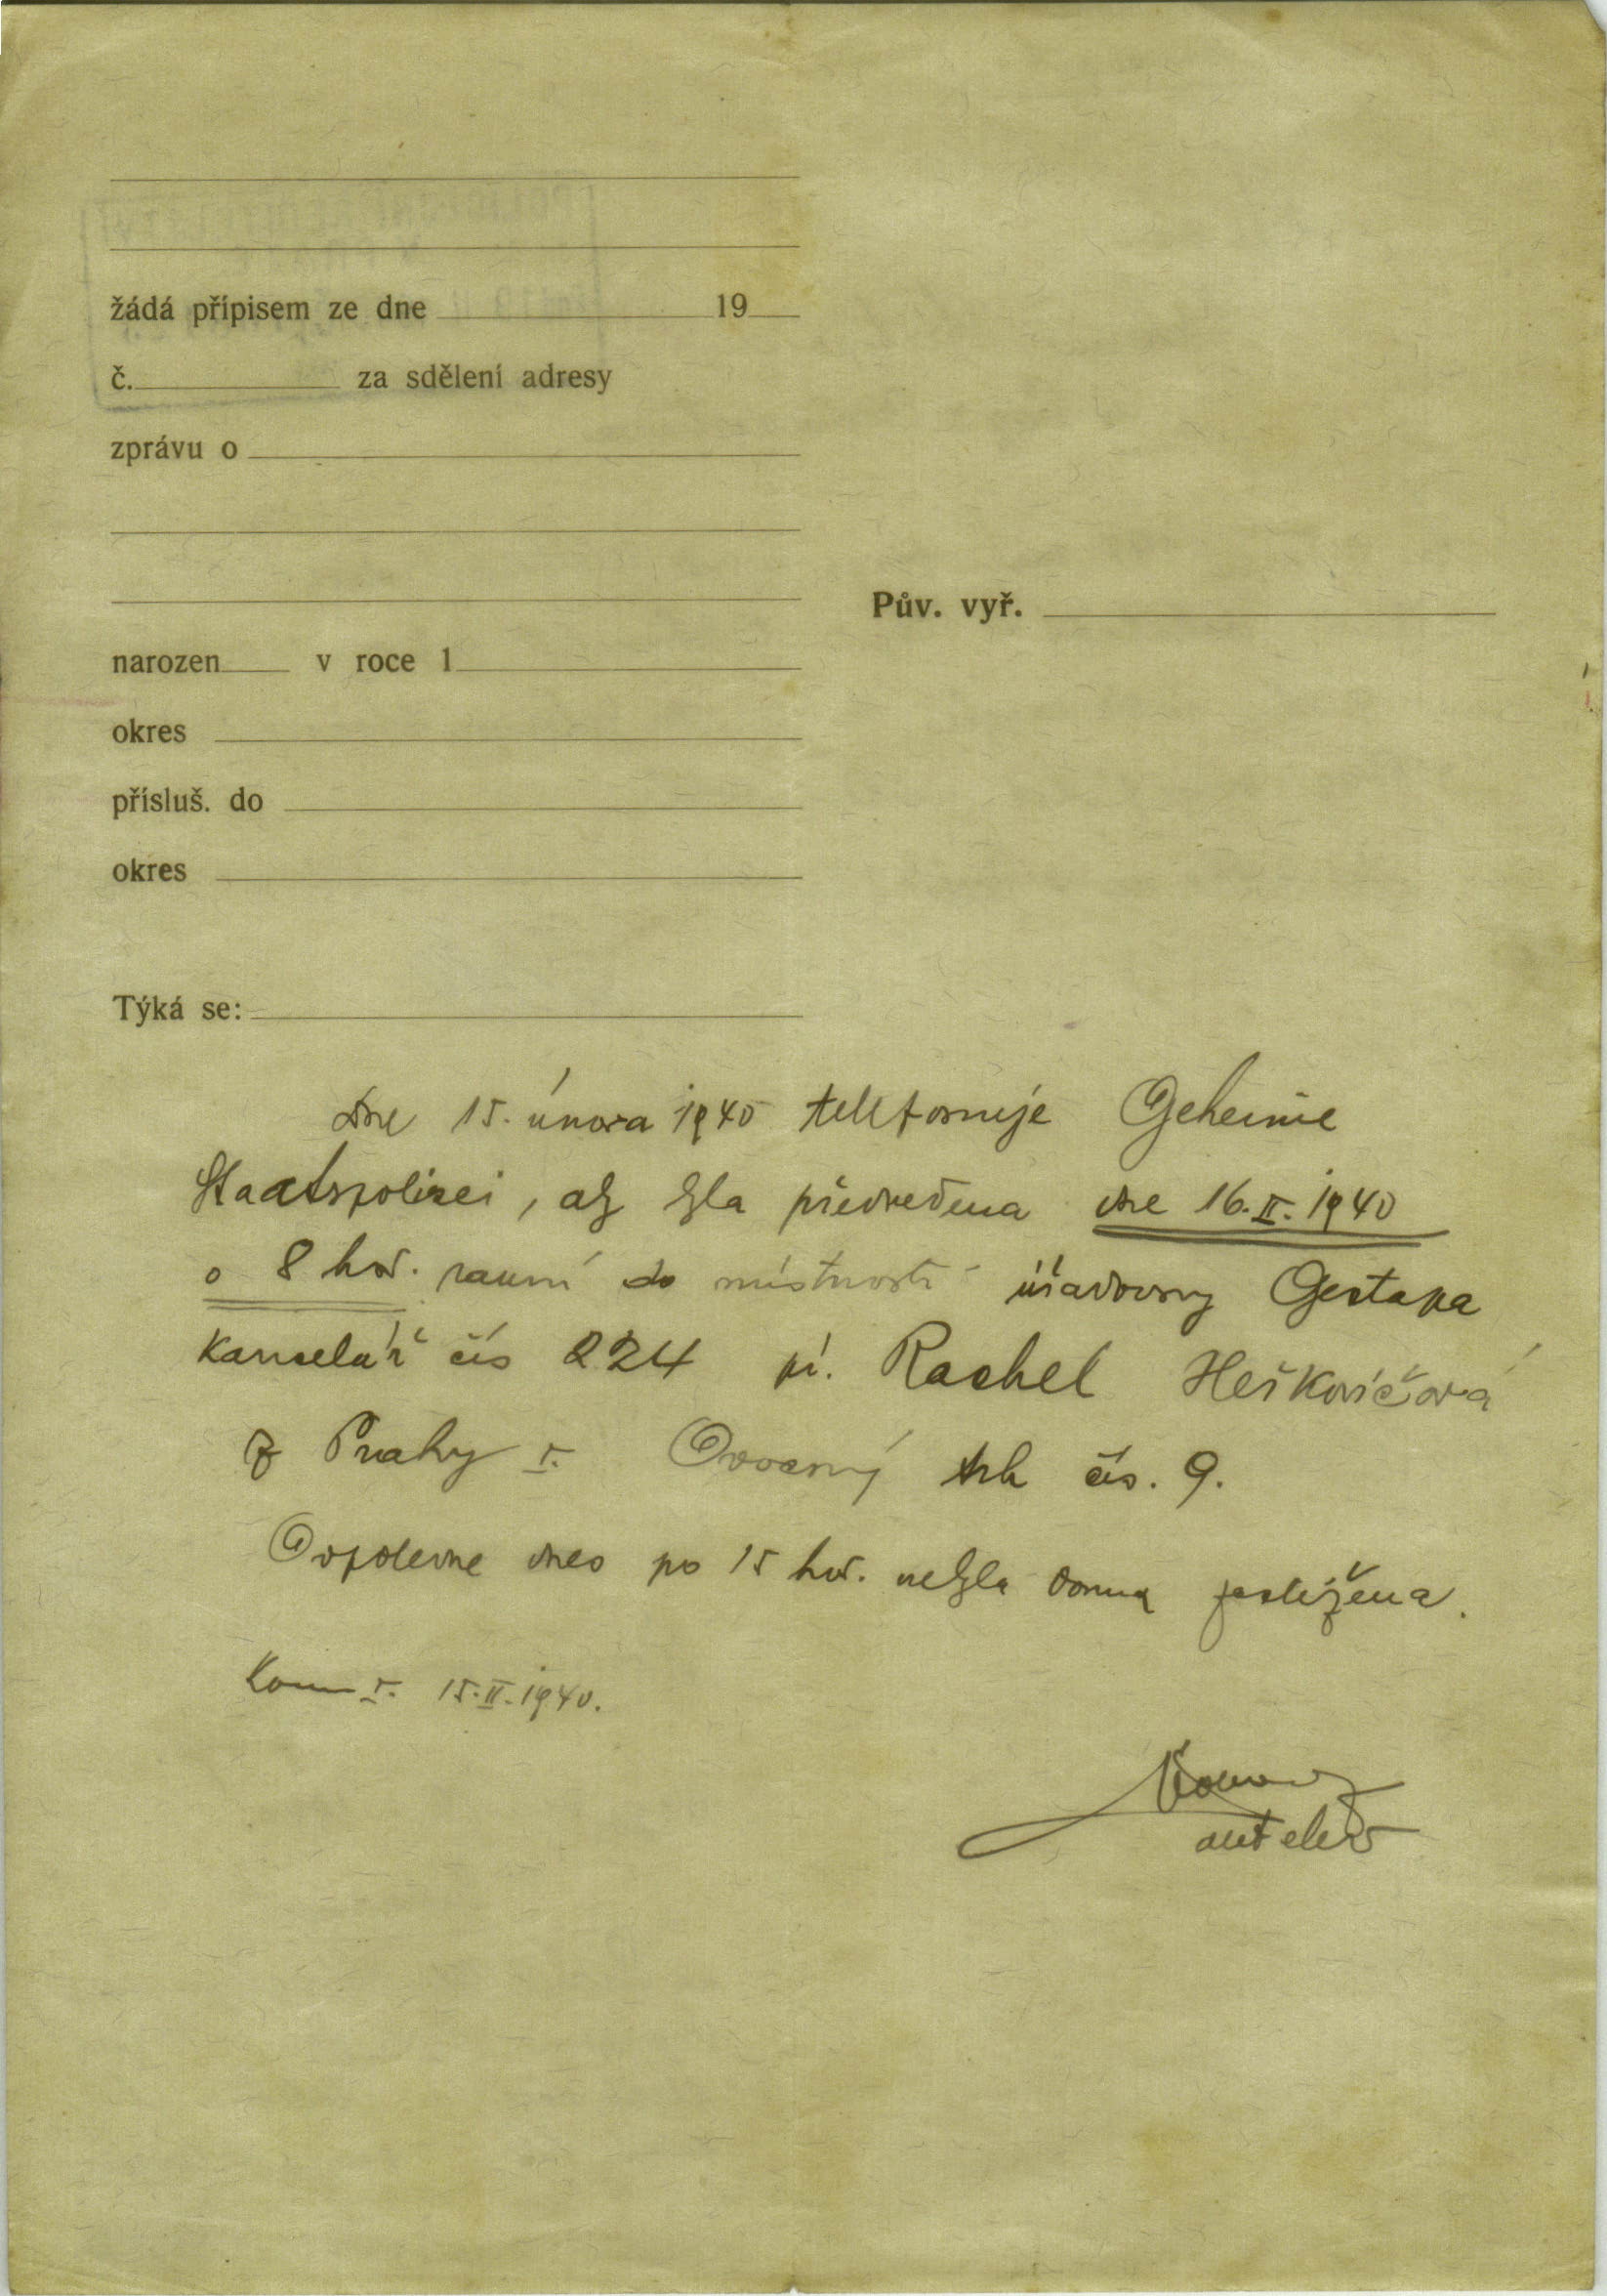 žádá přípisem ze dne 19
č. za sdělení adresy
zprávu o
Pův. vyř.
narozen v roce 1
okres
přísluš. do
okres
Týká se:
Dne 15. února 1940 telefonuje Geheime
Staatspolizei, aby byla předvedena dne 16.II.1940
o 8 hod. ranní do místnosti úřadovny Gestapa
kancelář čís 224 pí. Rachel Heškovičová
z Prahy I. Ovocný trh čís. 9.
Odpoledne dnes po 15 hod. nebyla doma zastižena.
Kom I. 15.II.1940.